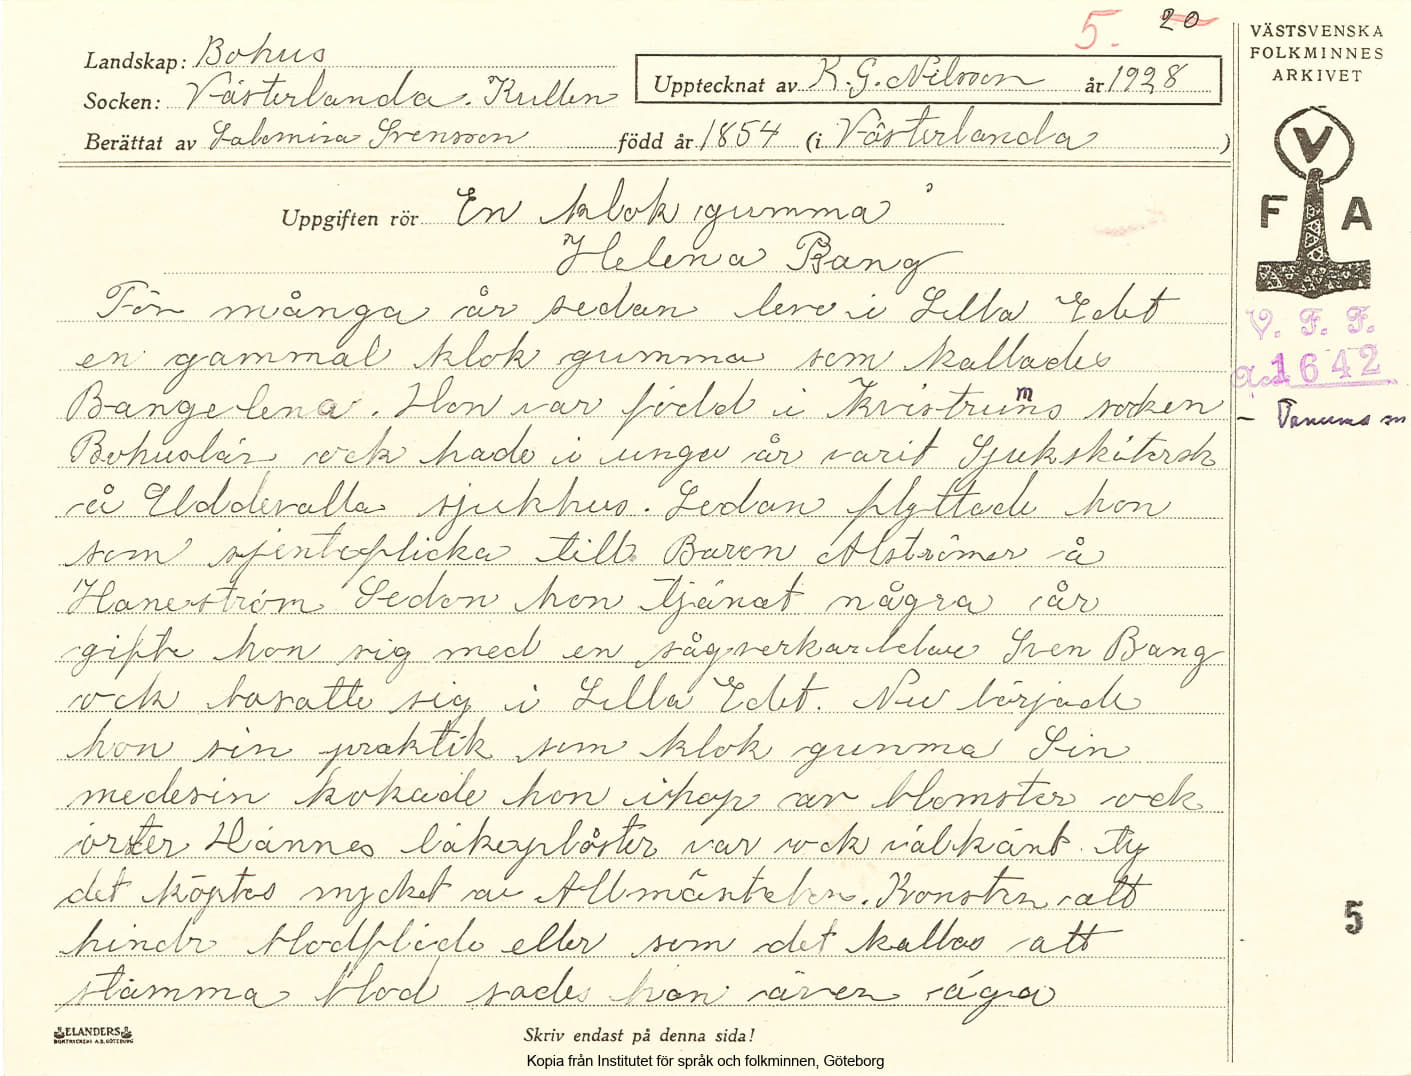 5. 20
VÄSTSVENSKA
FOLKMINNES
ARKIVET
Landskap: Bohus
Socken: Västerlanda. Kullen
Upptecknat av K. G. Nilsson år 1928
Berättat av Salomina Svensson född år 1854 (i Västerlanda )
V
F A
Uppgiften rör En klok gumma
Helena Bang
För många år sedan leve i Lilla Edet
en gammal klok gumma som kallades
Bangelena. Hon var född i Kvistrums socken
Bohuslän ock hade i unga år varit Sjukskötersk
å Uddevalla sjukhus. Sedan flyttade hon
som sjenteflicka till Baron Alströmer å
Haneström Sedan hon tjänat några år
gifte hon sig med en sågverkarbetare Sven Bang
ock bosatte sig i Lilla Edet. Nu började
hon sin praktik som klok gumma Sin
medesin kokade hon ihop av blomster ock
örter Hännes läkeplåster var ock välkänt ty
det köptes mycket av Allmänheten. Konsten att
hindr blodflöde eller som det kallas att
stämma blod sades hon även äga
V. F. F.
Acc 1642
- Tanums sn
5
ELANDERS
BOKTRYCKERI A.B. GÖTEBORG
Skriv endast på denna sida!
Kopia från Institutet för språk och folkminnen, Göteborg